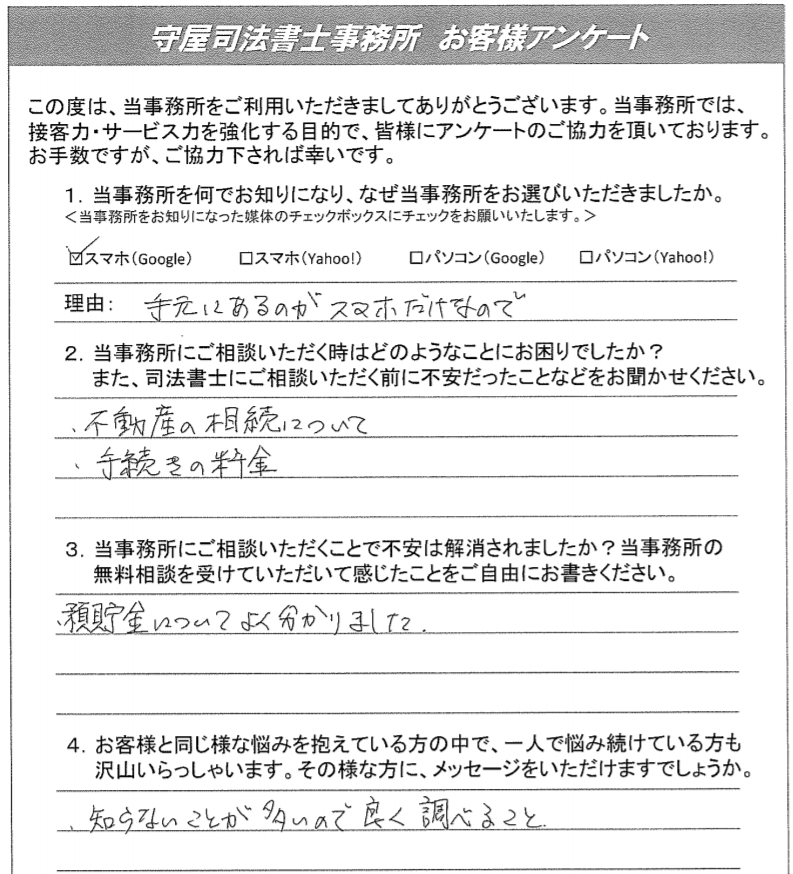 守屋司法書士事務所 お客様アンケート
この度は、当事務所をご利用いただきましてありがとうございます。当事務所では、
接客力・サービス力を強化する目的で、皆様にアンケートのご協力を頂いております。
お手数ですが、ご協力下されば幸いです。
1. 当事務所を何でお知りになり、なぜ当事務所をお選びいただきましたか。
＜当事務所をお知りになった媒体のチェックボックスにチェックをお願いいたします。＞
☑スマホ(Google) □スマホ(Yahoo!) □パソコン(Google) □パソコン(Yahoo!)
理由: 手元にあるのがスマホだけなので
2. 当事務所にご相談いただく時はどのようなことにお困りでしたか？
また、司法書士にご相談いただく前に不安だったことなどをお聞かせください。
、不動産の相続について
、手続きの料金
3. 当事務所にご相談いただくことで不安は解消されましたか？当事務所の
無料相談を受けていただいて感じたことをご自由にお書きください。
、預貯金についてよく分かりました.
4. お客様と同じ様な悩みを抱えている方の中で、一人で悩み続けている方も
沢山いらっしゃいます。その様な方に、メッセージをいただけますでしょうか。
、知らないことが多いので良く調べること.